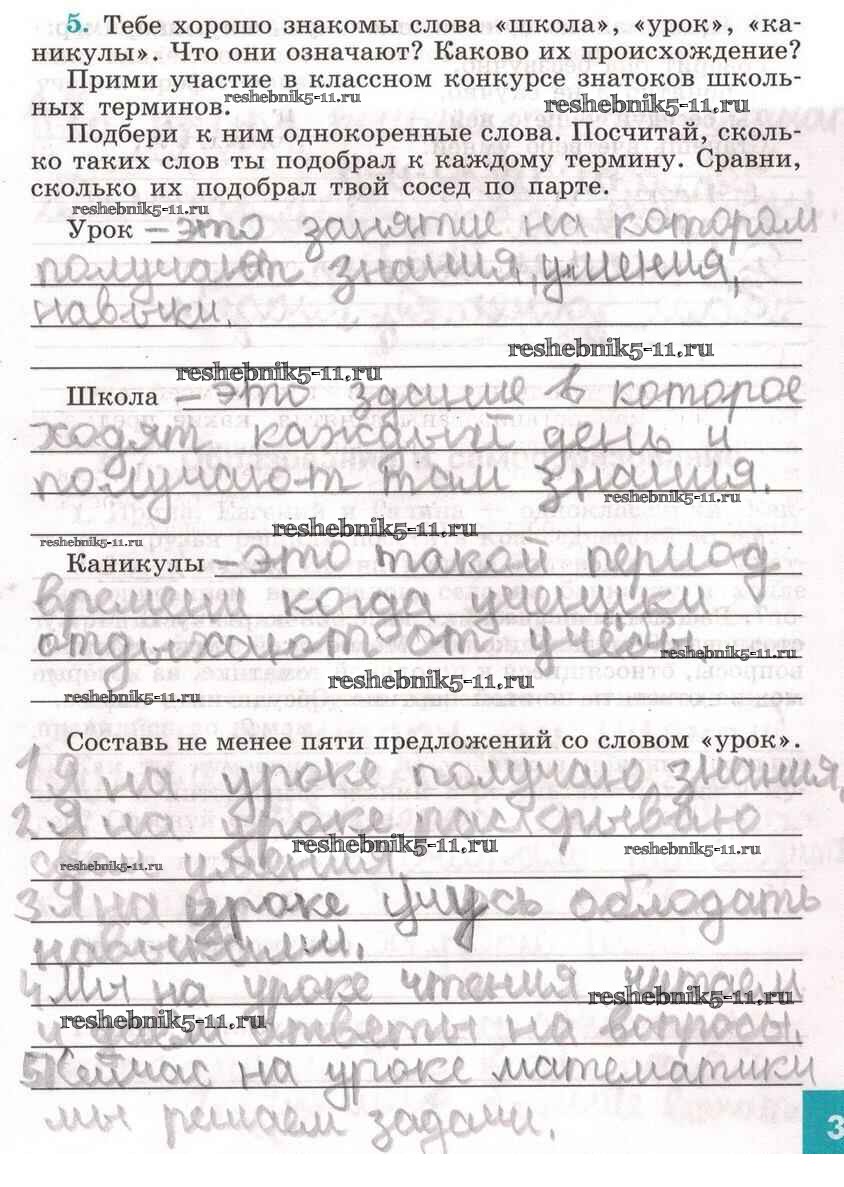 5. Тебе хорошо знакомы слова «школа», «урок», «ка-
никулы». Что они означают? Каково их происхождение?
Прими участие в классном конкурсе знатоков школь-
ных терминов.
reshebnik5-11.ru
reshebnik5-11.ru
Подбери к ним однокоренные слова. Посчитай, сколь-
ко таких слов ты подобрал к каждому термину. Сравни,
сколько их подобрал твой сосед по парте.
reshebnik5-11.ru
Урок – это занятие на котором
получают знания, умения,
навыки.
reshebnik5-11.ru
reshebnik5-11.ru
Школа – это здание в которое
ходят каждый день и
получают там знания.
reshebnik5-11.ru
reshebnik5-11.ru
reshebnik5-11.ru
Каникулы – это такой период
времени когда ученики
отдыхают от учёбы.
reshebnik5-11.ru
reshebnik5-11.ru
reshebnik5-11.ru
Составь не менее пяти предложений со словом «урок».
1. Я на уроке получаю знания.
2. Я на уроке раскрываю
reshebnik5-11.ru
reshebnik5-11.ru
reshebnik5-11.ru
свои умения.
3. Я на уроке учусь обладать
навыками.
4. Мы на уроке чтения читаем
reshebnik5-11.ru
reshebnik5-11.ru
и ответы на вопросы.
5. Сейчас на уроке математики
мы решаем задачи.
3